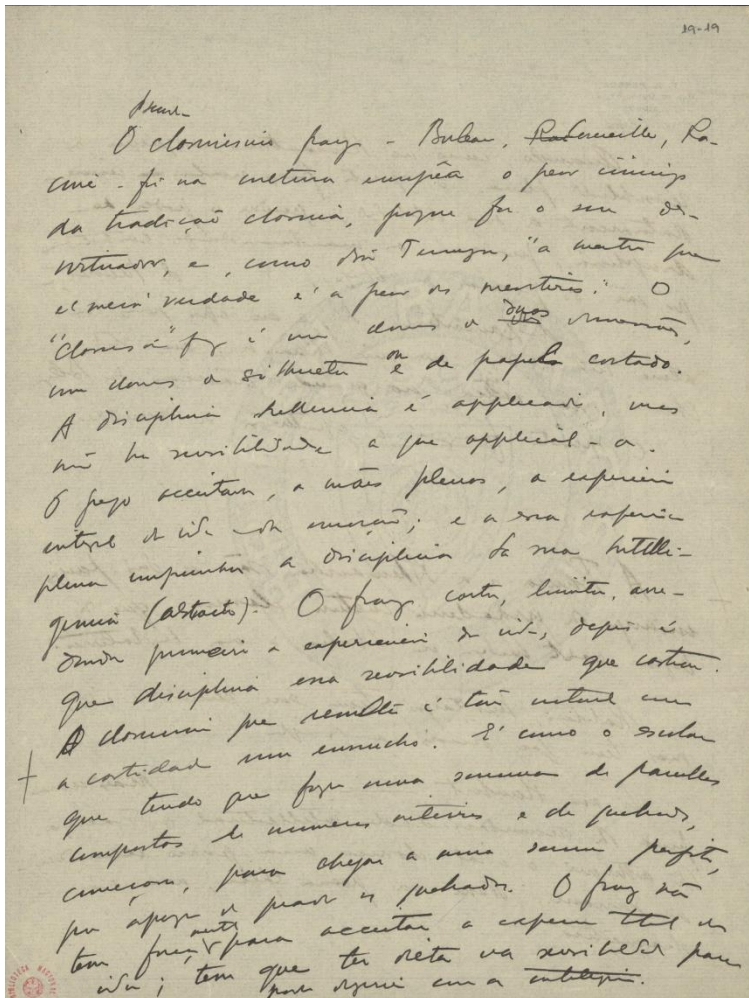 19-19
O classicismo francez - Boileau, Corneille, Ra-
cine - foi na cultura europêa o peor inimigo
da tradição classica, porque foi o seu des-
virtuador, e, como diz Tennyson, "a mentira que
é meia verdade é a peor das mentiras." O
"classico" francez é um classico de duas dimensões,
um classico de silhueta ou de papel cortado.
A disciplina hellenica é applicada, mas
não ha sensibilidade a que applical-a.
O grego acceitava, a mãos plenas, a experiencia
integral da vida e da emoção; e a essa experiencia
plena impunha a disciplina da sua intelli-
gencia (abstracta). O francez corta, limita, arre-
donda primeiro a experiencia da vida, depois é
que disciplina essa sensibilidade que cortou.
A classicismo que resulta é tão natural como
a castidade num eunucho. É como o escolar
que tendo que fazer uma somma de parcellas
compostas de numeros inteiros e de quebrados,
começasse, para chegar a uma somma perfeita,
por apagar os quebrados. O francez não
tem força para acceitar a experiencia total da
vida; tem que ter dieta na sensibilidade para
poder com a